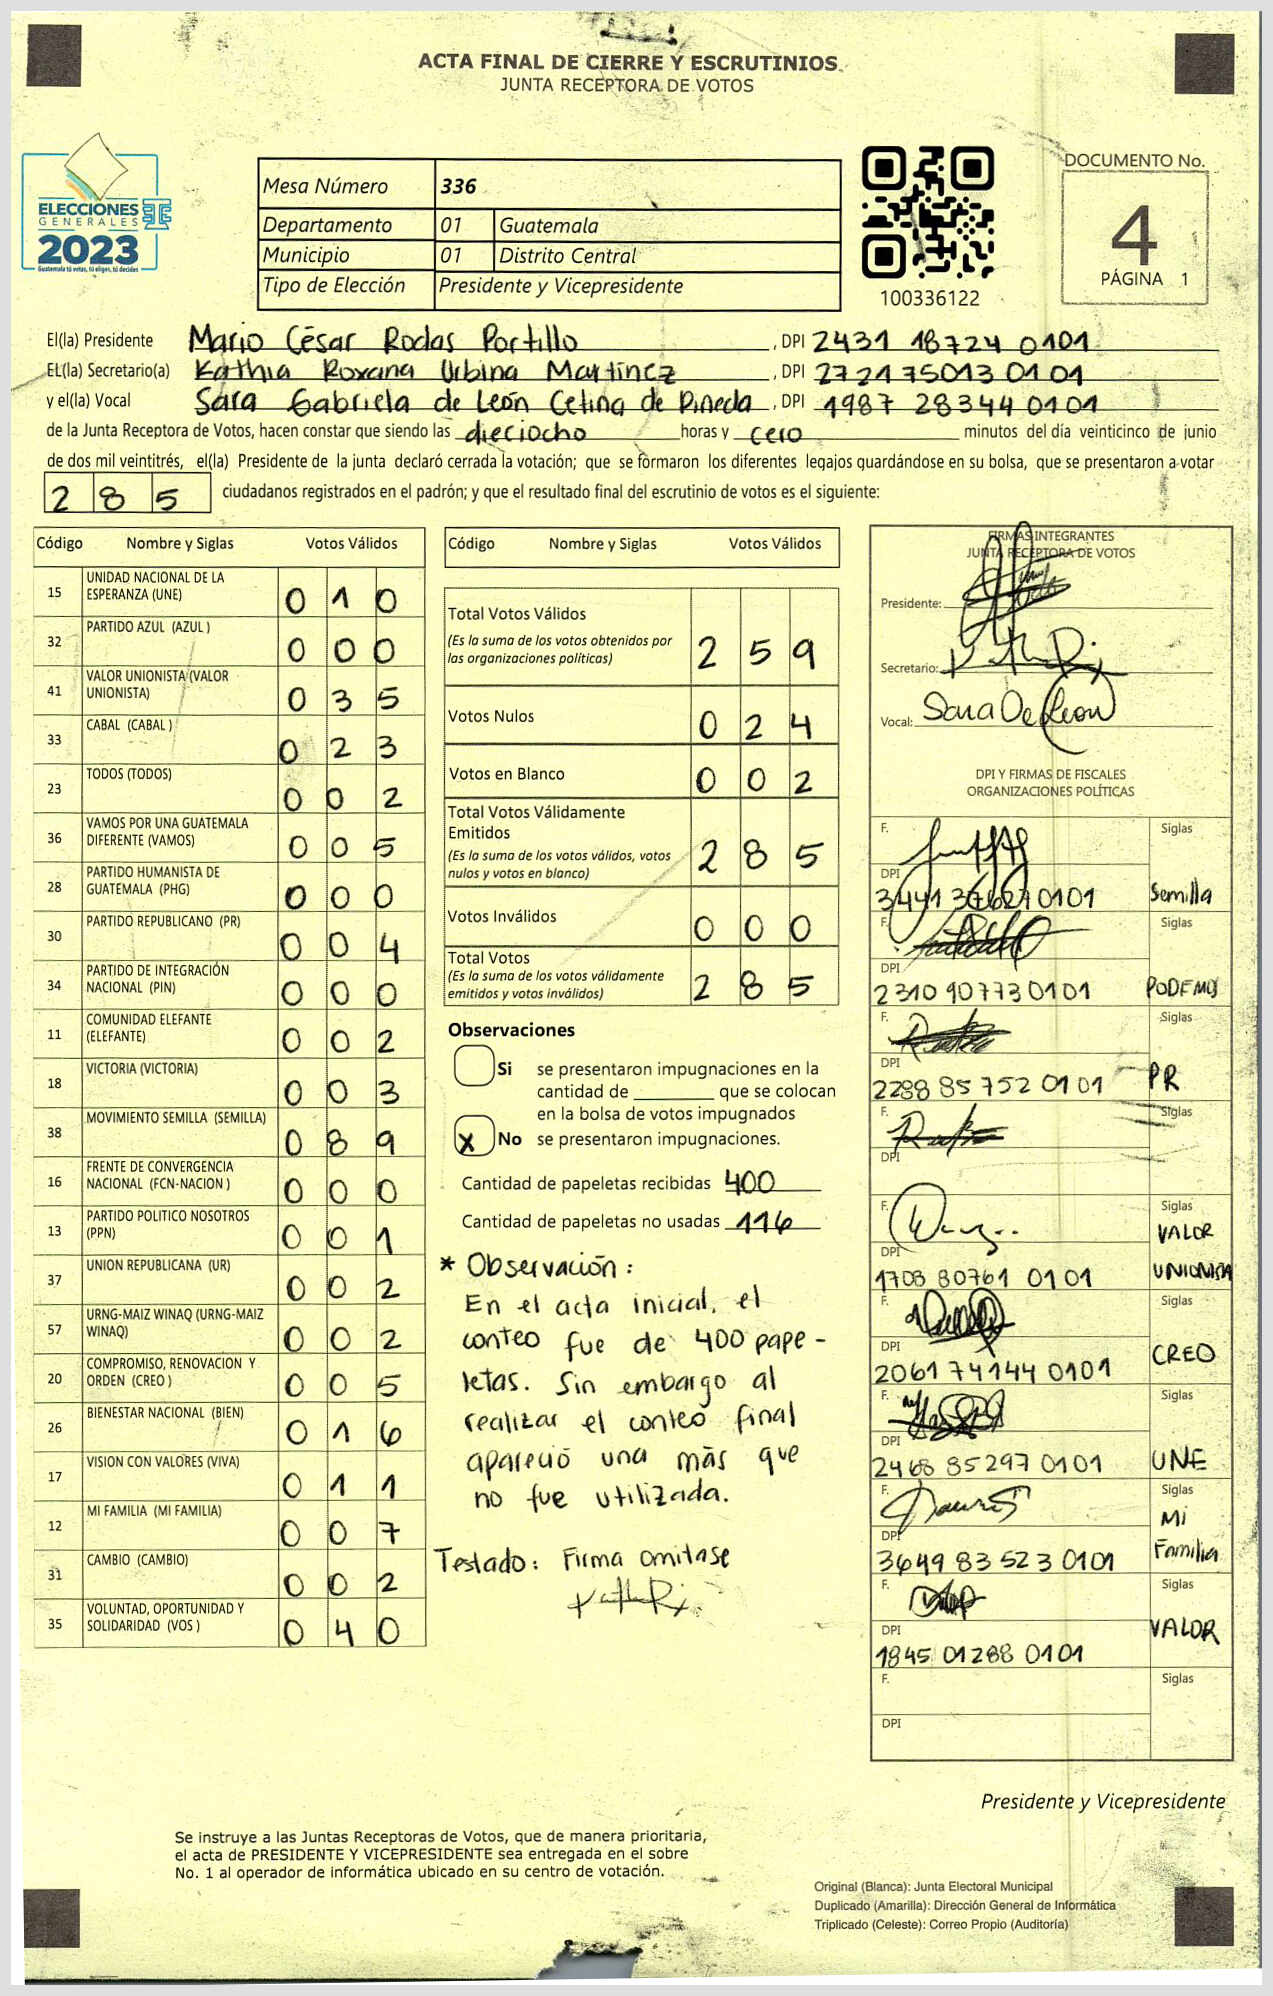 ACTA FINAL DE CIERRE Y ESCRUTINIOS
JUNTA RECEPTORA DE VOTOS
ELECCIONES
GENERALES
2023
Guatemala tú votas, tú eliges, tú decides
Mesa Número 336
Departamento 01 Guatemala
Municipio 01 Distrito Central
Tipo de Elección Presidente y Vicepresidente
100336122
DOCUMENTO No.
4
PÁGINA 1
El(la) Presidente Mario César Rodas Portillo, DPI 2431 18724 0101
EL(la) Secretario(a) Kathia Roxana Urbina Martínez, DPI 2721 75013 0101
y el(la) Vocal Sara Gabriela de León Cetina de Pineda, DPI 1987 28344 0101
de la Junta Receptora de Votos, hacen constar que siendo las dieciocho horas y cero minutos del día veinticinco de junio
de dos mil veintitrés, el(la) Presidente de la junta declaró cerrada la votación; que se formaron los diferentes legajos guardándose en su bolsa, que se presentaron a votar
285 ciudadanos registrados en el padrón; y que el resultado final del escrutinio de votos es el siguiente:
Código Nombre y Siglas Votos Válidos
15 UNIDAD NACIONAL DE LA ESPERANZA (UNE) 010
32 PARTIDO AZUL (AZUL ) 000
41 VALOR UNIONISTA (VALOR UNIONISTA) 035
33 CABAL (CABAL ) 023
23 TODOS (TODOS) 002
36 VAMOS POR UNA GUATEMALA DIFERENTE (VAMOS) 005
28 PARTIDO HUMANISTA DE GUATEMALA (PHG) 000
30 PARTIDO REPUBLICANO (PR) 004
34 PARTIDO DE INTEGRACIÓN NACIONAL (PIN) 000
11 COMUNIDAD ELEFANTE (ELEFANTE) 002
18 VICTORIA (VICTORIA) 003
38 MOVIMIENTO SEMILLA (SEMILLA) 089
16 FRENTE DE CONVERGENCIA NACIONAL (FCN-NACION ) 000
13 PARTIDO POLITICO NOSOTROS (PPN) 001
37 UNION REPUBLICANA (UR) 002
57 URNG-MAIZ WINAQ (URNG-MAIZ WINAQ) 002
20 COMPROMISO, RENOVACION Y ORDEN (CREO ) 005
26 BIENESTAR NACIONAL (BIEN) 016
17 VISION CON VALORES (VIVA) 011
12 MI FAMILIA (MI FAMILIA) 007
31 CAMBIO (CAMBIO) 002
35 VOLUNTAD, OPORTUNIDAD Y SOLIDARIDAD (VOS ) 040
Código Nombre y Siglas Votos Válidos
Total Votos Válidos 259
(Es la suma de los votos obtenidos por
las organizaciones políticas)
Votos Nulos 024
Votos en Blanco 002
Total Votos Válidamente
Emitidos 285
(Es la suma de los votos válidos, votos
nulos y votos en blanco)
Votos Inválidos 000
Total Votos 285
(Es la suma de los votos válidamente
emitidos y votos inválidos)
Observaciones
Si se presentaron impugnaciones en la
cantidad de ________ que se colocan
en la bolsa de votos impugnados
X No se presentaron impugnaciones.
Cantidad de papeletas recibidas 400
Cantidad de papeletas no usadas 116
* Observación:
En el acta inicial, el
conteo fue de 400 pape-
letas. Sin embargo al
realizar el conteo final
apareció una más que
no fue utilizada.
Testado: Firma omitase
FIRMAS INTEGRANTES
JUNTA RECEPTORA DE VOTOS
Presidente:
Secretario:
Vocal: Sara De León
DPI Y FIRMAS DE FISCALES
ORGANIZACIONES POLÍTICAS
F. Siglas
DPI
3441 37627 0101 Semilla
F. Siglas
DPI
2310 90773 0101 PODEMOS
F. Siglas
DPI
2288 85752 0101 PR
F. Siglas
DPI
F. Siglas
VALOR
DPI
1708 80761 0101 UNIONISTA
F. Siglas
DPI CREO
2061 74144 0101
F. Siglas
DPI
2468 85297 0101 UNE
F. Siglas
Mi
DPI
3649 83523 0101 Familia
F. Siglas
DPI VALOR
1845 01288 0101
F. Siglas
DPI
Presidente y Vicepresidente
Se instruye a las Juntas Receptoras de Votos, que de manera prioritaria,
el acta de PRESIDENTE Y VICEPRESIDENTE sea entregada en el sobre
No. 1 al operador de informática ubicado en su centro de votación.
Original (Blanca): Junta Electoral Municipal
Duplicado (Amarilla): Dirección General de Informática
Triplicado (Celeste): Correo Propio (Auditoría)